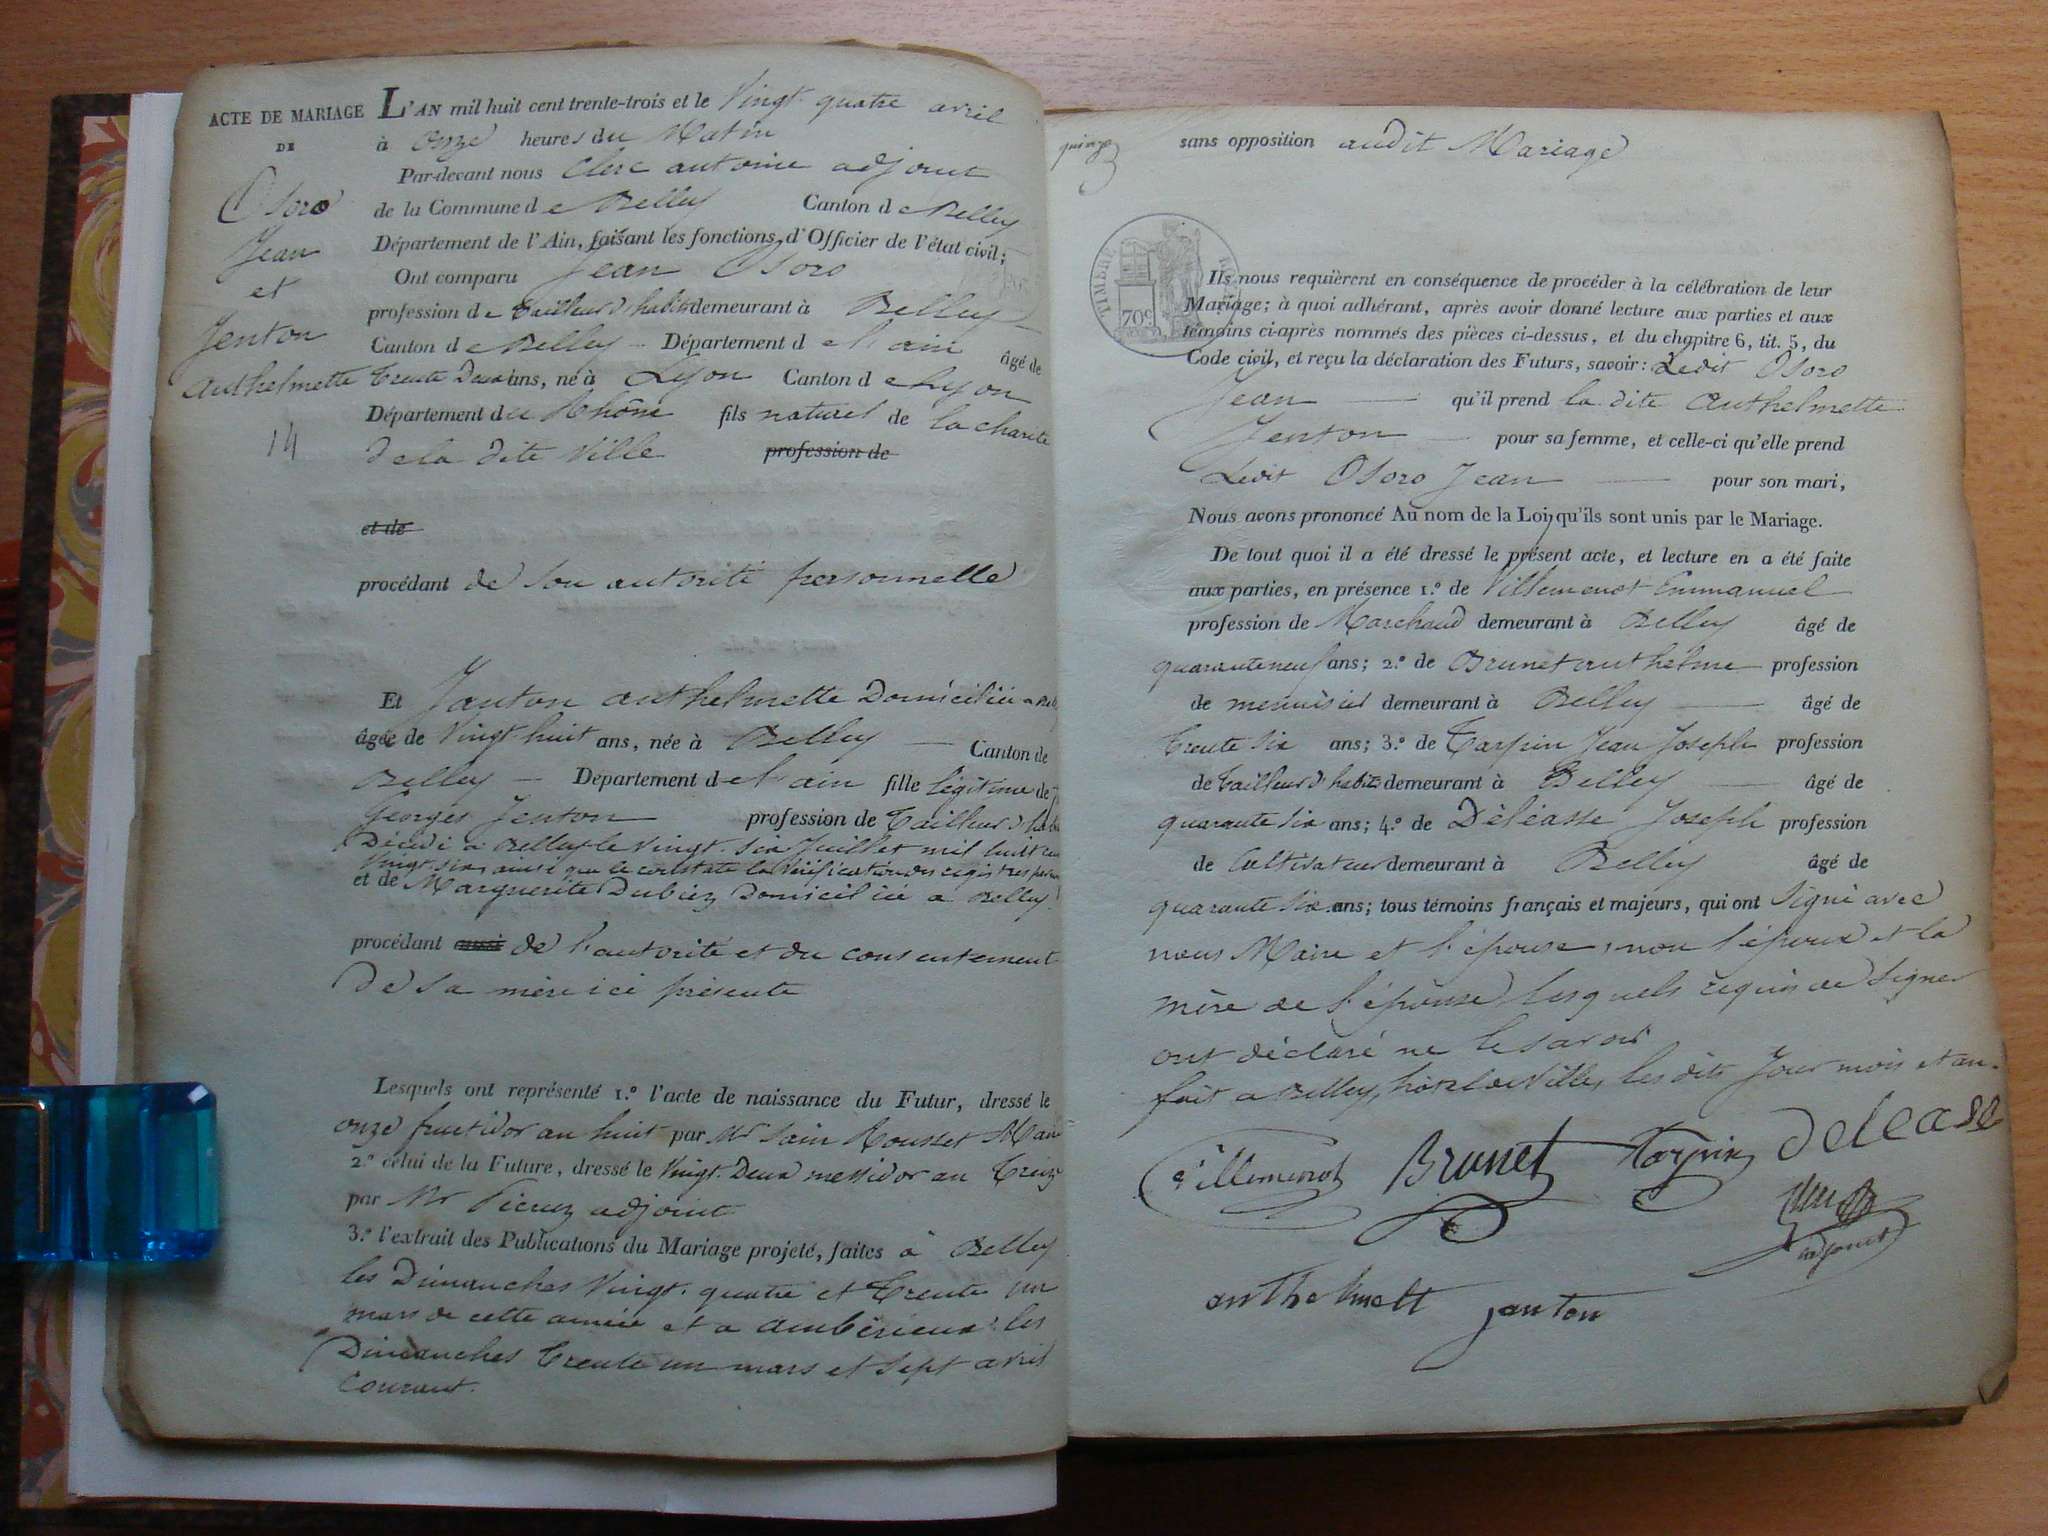 ACTE DE MARIAGE
DE
Osoro
Jean
et
Jenton
Anthelmette
14
L'AN mil huit cent trente-trois et le Vingt quatre avril
à onze heures du Matin
Par-devant nous Clerc antoine adjoint
de la Commune de Belley Canton de Belley
Département de l'Ain, faisant les fonctions d'Officier de l'état civil;
Ont comparu Jean Osoro
profession de tailleur d'habits demeurant à Belley
Canton de Belley Département de l'ain âgé de
trente Deux ans, né à Lyon Canton de Lyon
Département du Rhône fils naturel de la charité
de la dite Ville profession de
et de
procédant de son autorité personnelle
Et Janton anthelmette Domiciliée a
âgée de Vingt huit ans, née à Belley Canton de
Belley Département de l'ain fille légitime de
Georges Jenton profession de tailleur d'
Décédé a Belley le Vingt six Juillet mil huit cent
Vingt six, ainsi que le constate la Vérification des registres
et de Marguerite Dubiez Domiciliée a Belley
procédant aussi de l'autorité et du consentement
de sa mère ici présente
Lesquels ont représenté 1.º l'acte de naissance du Futur, dressé le
onze fructidor an huit par Mr Sain Rousset
2.º celui de la Future, dressé le Vingt Deux messidor an treize
par Mr adjoint
3.º l'extrait des Publications du Mariage projeté, faites à Belley
les Dimanches Vingt quatre et trente un
mars de cette année et a ambérieux les
Dimanches trente un mars et sept avril
courant.
quinze
sans opposition audit Mariage
TIMBRE
70c
Ils nous requièrent en conséquence de procéder à la célébration de leur
Mariage; à quoi adhérant, après avoir donné lecture aux parties et aux
témoins ci-après nommés des pièces ci-dessus, et du chapitre 6, tit. 5, du
Code civil, et reçu la déclaration des Futurs, savoir: Ledit Osoro
Jean qu'il prend la dite anthelmette
Jenton pour sa femme, et celle-ci qu'elle prend
Ledit Osoro Jean pour son mari,
Nous avons prononcé Au nom de la Loi, qu'ils sont unis par le Mariage.
De tout quoi il a été dressé le présent acte, et lecture en a été faite
aux parties, en présence 1.º de Villemenot Emmanuel
profession de Marchand demeurant à Belley âgé de
quarante neuf ans; 2.º de Brunet anthelme profession
de menuisier demeurant à Belley âgé de
trente six ans; 3.º de Tarpin Jean Joseph profession
de tailleur d'habits demeurant à Belley âgé de
quarante six ans; 4.º de Déléasse Joseph profession
de Cultivateur demeurant à Belley âgé de
quarante six ans; tous témoins français et majeurs, qui ont signé avec
nous Maire et l'épouse, non l'époux et la
mère de l'épouse, lesquels requis de signer
ont déclaré ne le savoir
fait a Belley, hôtel de Ville, les dits Jour mois et an.
Villemenot Brunet Tarpin delease
adjoint
anthelmett janton